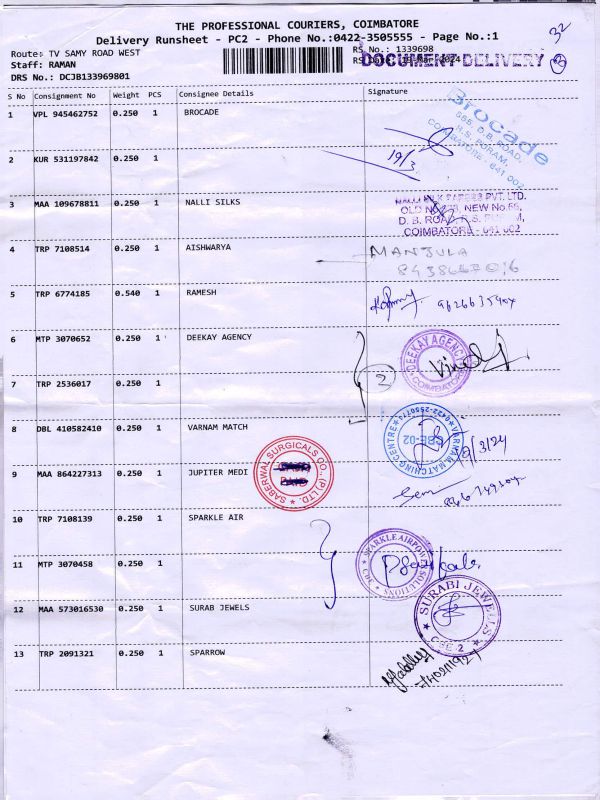 32
THE PROFESSIONAL COURIERS, COIMBATORE
Delivery Runsheet - PC2 - Phone No.:0422-3505555 - Page No.:1
Route: TV SAMY ROAD WEST
RS No.: 1339698
Staff: RAMAN
DOCUMENT DELIVERY
3
DRS No.: DCJB133969801
S No Consignment No Weight PCS Consignee Details Signature
1 VPL 945462752 0.250 1 BROCADE
Brocade
D.B. ROAD,
R.S. PURAM,
COIMBATORE - 641 002
2 KUR 531197842 0.250 1
19/3
3 MAA 109678811 0.250 1 NALLI SILKS
PVT. LTD.
OLD NEW No.
D. B. ROAD, R.S.
COIMBATORE - 641 002
4 TRP 7108514 0.250 1 AISHWARYA
MANJULA
5 TRP 6774185 0.540 1 RAMESH
6 MTP 3070652 0.250 1 DEEKAY AGENCY
DEEKAY AGENCY
COIMBATORE
2
7 TRP 2536017 0.250 1
8 DBL 410582410 0.250 1 VARNAM MATCH
VARNAM MATCHING CENTRE
0422-2550774
CBE-02
/3/24
SABERWAL SURGICALS CO. (P) LTD.
9 MAA 864227313 0.250 1 JUPITER MEDI
10 TRP 7108139 0.250 1 SPARKLE AIR
SPARKLE AIRPOW SOLUTIONS
11 MTP 3070458 0.250 1
12 MAA 573016530 0.250 1 SURAB JEWELS
SURABI JEWELS
CBE-2
13 TRP 2091321 0.250 1 SPARROW